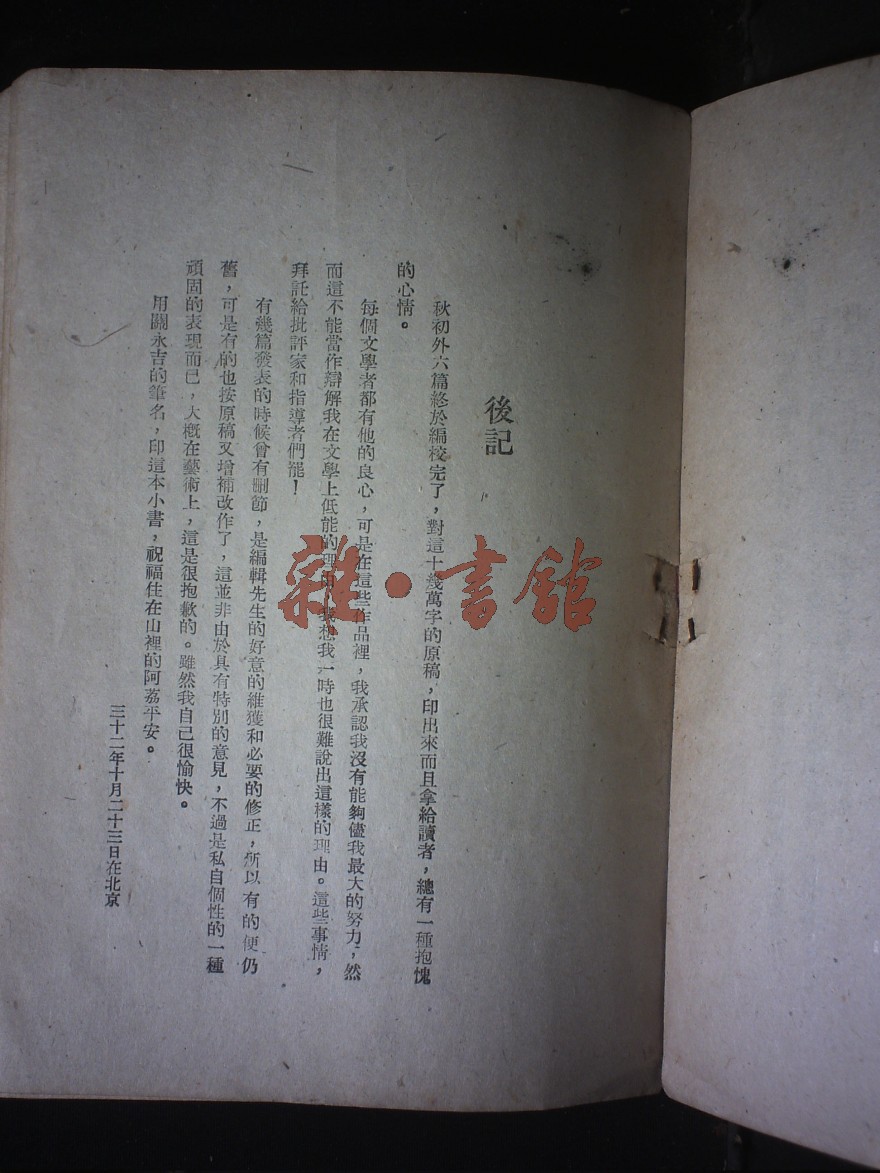 後記
秋初外六篇終於編校完了，對這十幾萬字的原稿，印出來而且拿給讀者，總有一種抱愧
的心情。
每個文學者都有他的良心，可是在這些作品裡，我承認我沒有能夠儘我最大的努力，然
而這不能當作辯解我在文學上低能的理由，我想我一時也很難說出這樣的理由。這些事情，
拜託給批評家和指導者們罷！
有幾篇發表的時候曾有刪節，是編輯先生的好意的維獲和必要的修正，所以有的便仍
舊，可是有的也按原稿又增補改作了，這並非由於具有特別的意見，不過是私自個性的一種
頑固的表現而已，大概在藝術上，這是很抱歉的。雖然我自己很愉快。
用關永吉的筆名，印這本小書，祝福住在山裡的阿荔平安。
三十二年十月二十三日在北京
雜·書館